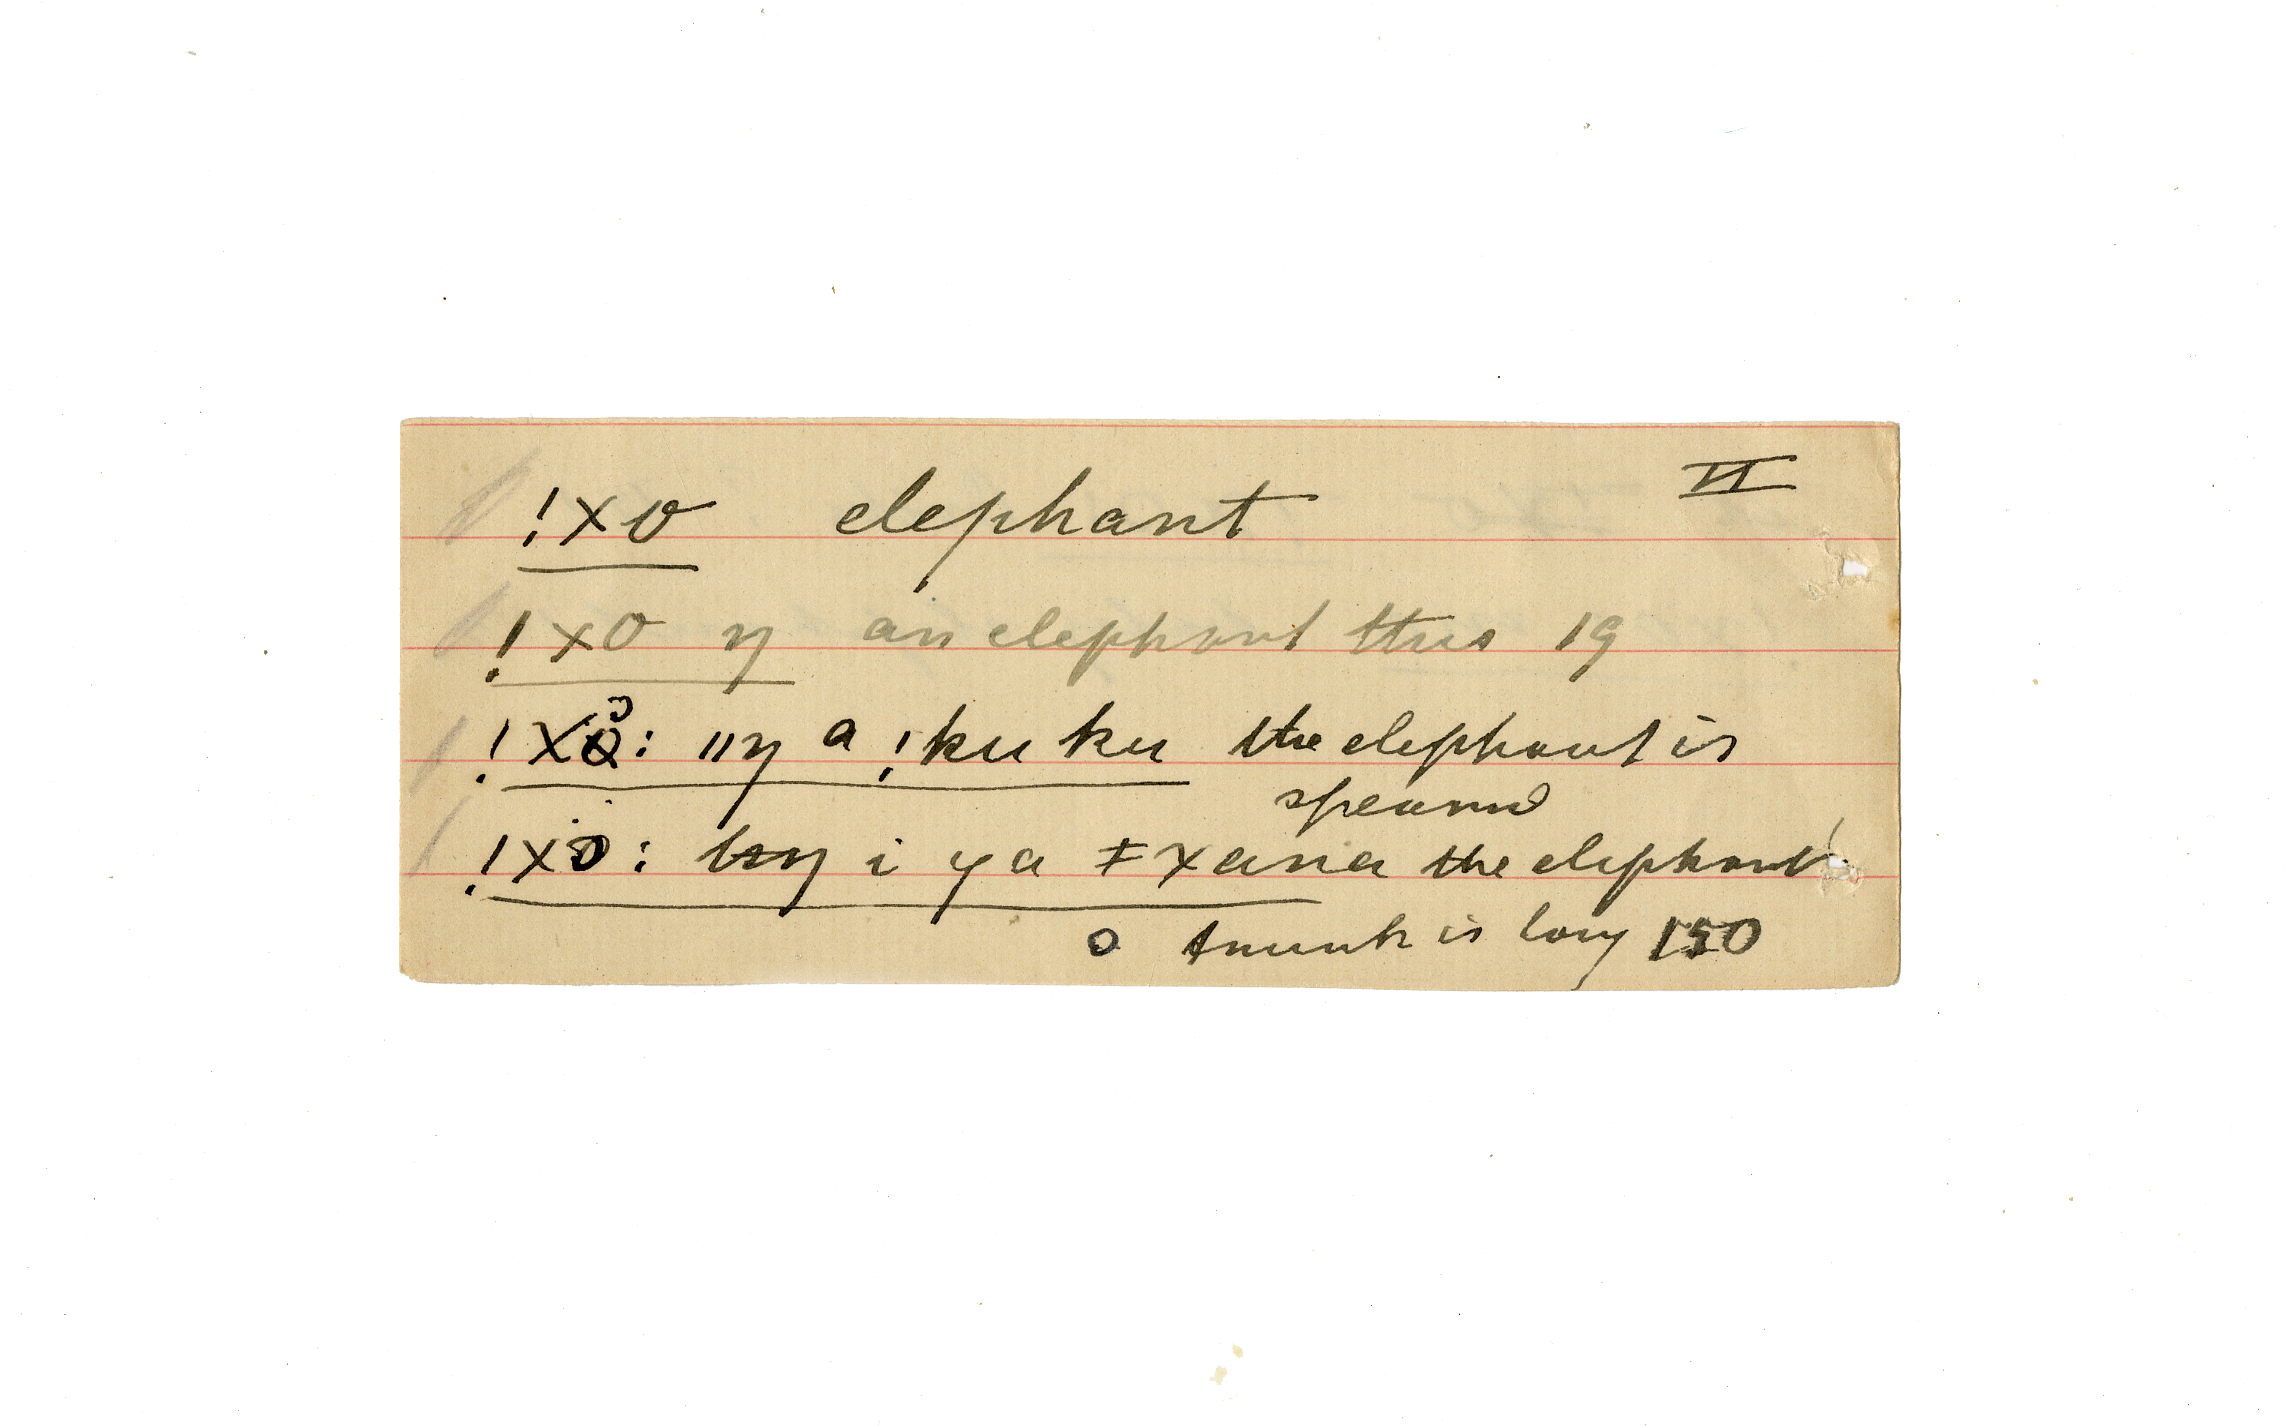 !xo elephant VI
!xo ŋ an elephant this 19
!xo: ǁŋ a !kuku the elephant is
speared
!xo: i ya ǂxana the elephant
trunk is long 150